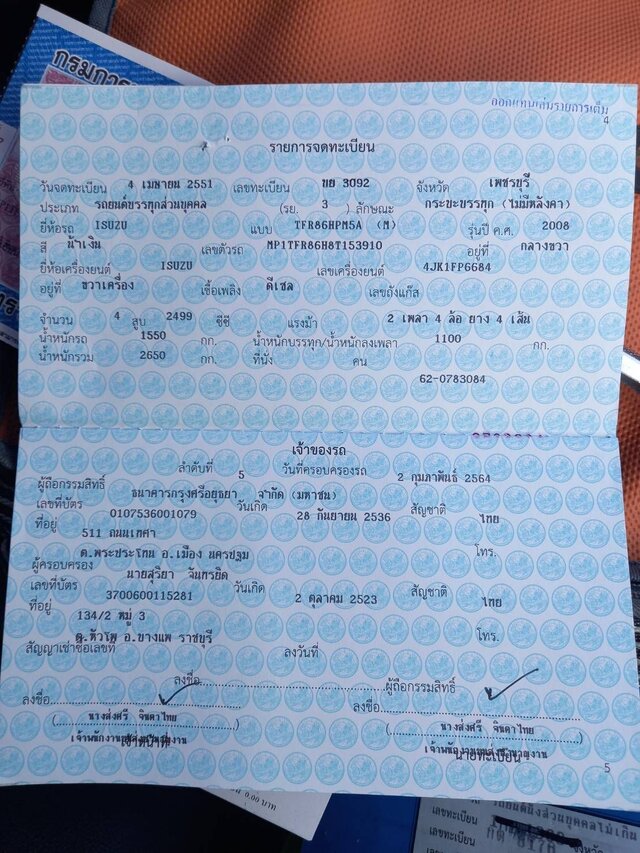 กรมการ
ออกแทนเล่มรายการเต็ม
4
รายการจดทะเบียน
วันจดทะเบียน 4 เมษายน 2551 เลขทะเบียน ขย 3092 จังหวัด เพชรบุรี
ประเภท รถยนต์บรรทุกส่วนบุคคล (รย. 3 ) ลักษณะ กระบะบรรทุก (ไม่มีหลังคา)
ยี่ห้อรถ ISUZU แบบ TFR86HPM5A (M) รุ่นปี ค.ศ. 2008
สี น้ำเงิน เลขตัวรถ MP1TFR86H8T153910 อยู่ที่ กลางขวา
ยี่ห้อเครื่องยนต์ ISUZU เลขเครื่องยนต์ 4JK1FP6684
อยู่ที่ ขวาเครื่อง เชื้อเพลิง ดีเซล เลขถังแก๊ส
จำนวน 4 สูบ 2499 ซีซี แรงม้า 2 เพลา 4 ล้อ ยาง 4 เส้น
น้ำหนักรถ 1550 กก. น้ำหนักบรรทุก/น้ำหนักลงเพลา 1100 กก.
น้ำหนักรวม 2650 กก. ที่นั่ง คน
62-0783084
เจ้าของรถ
ลำดับที่ 5 วันที่ครอบครองรถ 2 กุมภาพันธ์ 2564
ผู้ถือกรรมสิทธิ์ ธนาคารกรุงศรีอยุธยา จำกัด (มหาชน)
เลขที่บัตร 0107536001079 วันเกิด 28 กันยายน 2536 สัญชาติ ไทย
ที่อยู่ 511 ถนนเทศา
ต.พระประโทน อ.เมือง นครปฐม โทร.
ผู้ครอบครอง นายสุริยา จันทรยิด
เลขที่บัตร 3700600115281 วันเกิด 2 ตุลาคม 2523 สัญชาติ ไทย
ที่อยู่ 134/2 หมู่ 3
ต.หัวโพ อ.บางแพ ราชบุรี โทร.
สัญญาเช่าซื้อเลขที่ ลงวันที่
ลงชื่อ ผู้ถือกรรมสิทธิ์
ลงชื่อ ลงชื่อ
( นางส่งศรี จินดาไทย ) ( นางส่งศรี จินดาไทย )
เจ้าหน้าที่ นายทะเบียน
5
0.00 บาท
เลขทะเบียน